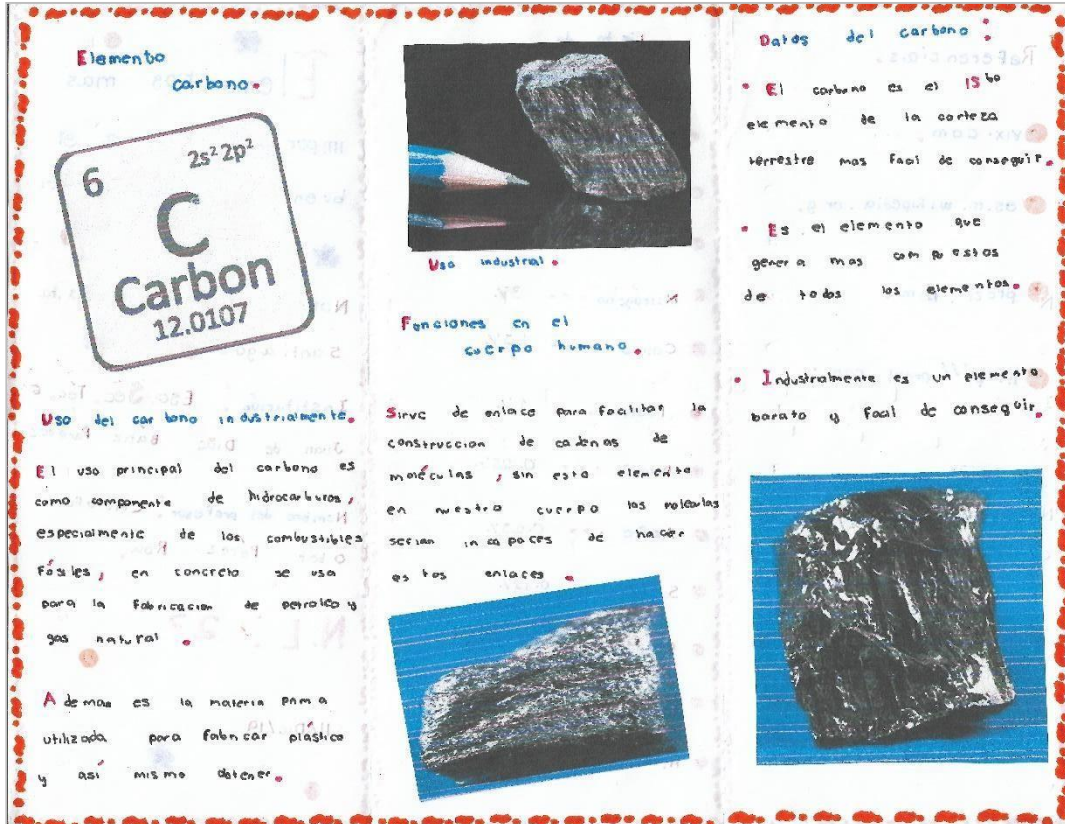 Elemento
carbono.
6
2s² 2p²
C
Carbon
12.0107
Uso del carbono industrialmente.
El uso principal del carbono es
como componente de hidrocarburos,
especialmente de los combustibles
Fósiles, en concreto se usa
para la fabricacion de petroleo y
gas natural.
Ademas es la materia prima
utilizada para fabricar plástico
y así mismo obtener.
Uso industrial.
Funciones en el
cuerpo humano.
Sirve de enlace para facilitar la
construccion de cadenas de
moléculas, sin este elemento
en nuestro cuerpo las moleculas
serian incapaces de hacer
estos enlaces.
Datos del carbono:
• El carbono es el 15bo
elemento de la corteza
terrestre mas facil de conseguir.
• Es el elemento que
genera mas compuestos
de todos los elementos.
• Industrialmente es un elemento
barato y facil de conseguir.